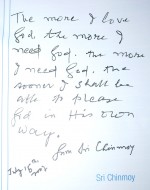 The more I love
God, the more I
need God. The more
I need God, the
sooner I shall be
able to please
God in His own
way.
from Sri Chinmoy
July 18
Sri Chinmoy